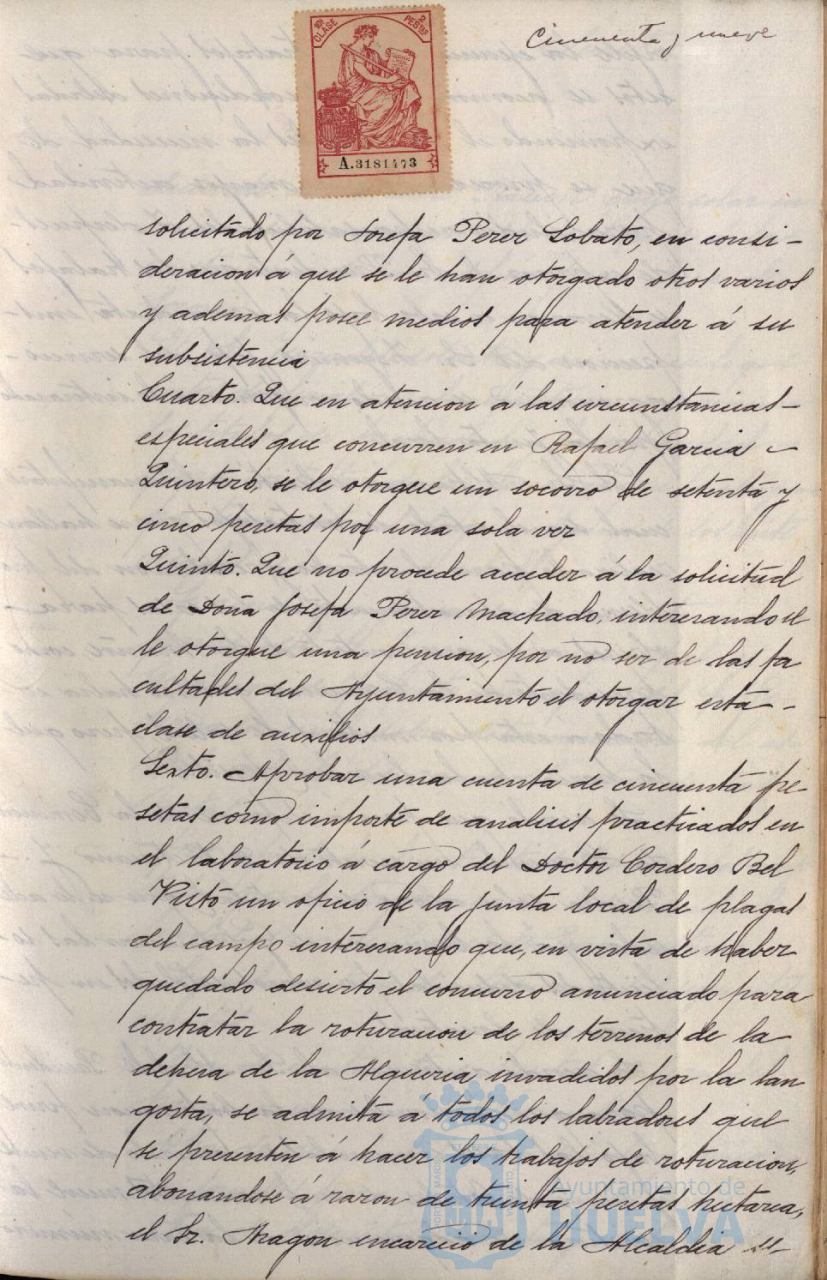 Cincuenta y nueve
10ª CLASE 2 PESTAS
A.3181473
solicitado por Josefa Perez Lobato, en consi-
deracion á que se le han otorgado otros varios
y ademas posee medios para atender á su
subsistencia
Cuarto. Que en atencion á las circunstancias-
especiales que concurren en Rafael Garcia -
Quintero, se le otorgue un socorro de setenta y
cinco pesetas por una sola vez
Quinto. Que no procede acceder á la solicitud
de Doña Josefa Perez Machado, interesando se
le otorgue una pension, por no ser de las fa
cultades del Ayuntamiento el otorgar esta-
clase de auxilios
Sexto. Aprobar una cuenta de cincuenta pe-
setas como importe de analisis practicados en
el laboratorio á cargo del Doctor Cordero Bel
Visto un oficio de la Junta local de plagas
del campo interesando que, en vista de haber
quedado desierto el concurso anunciado para
contratar la roturacion de los terrenos de la
dehesa de la Alqueria invadidos por la lan
gosta, se admita á todos los labradores que
se presenten á hacer los trabajos de roturacion,
abonandose á razon de treinta pesetas hectarea,
el Sr. Aragon encareció de la Alcaldia se-
Ayuntamiento de
HUELVA